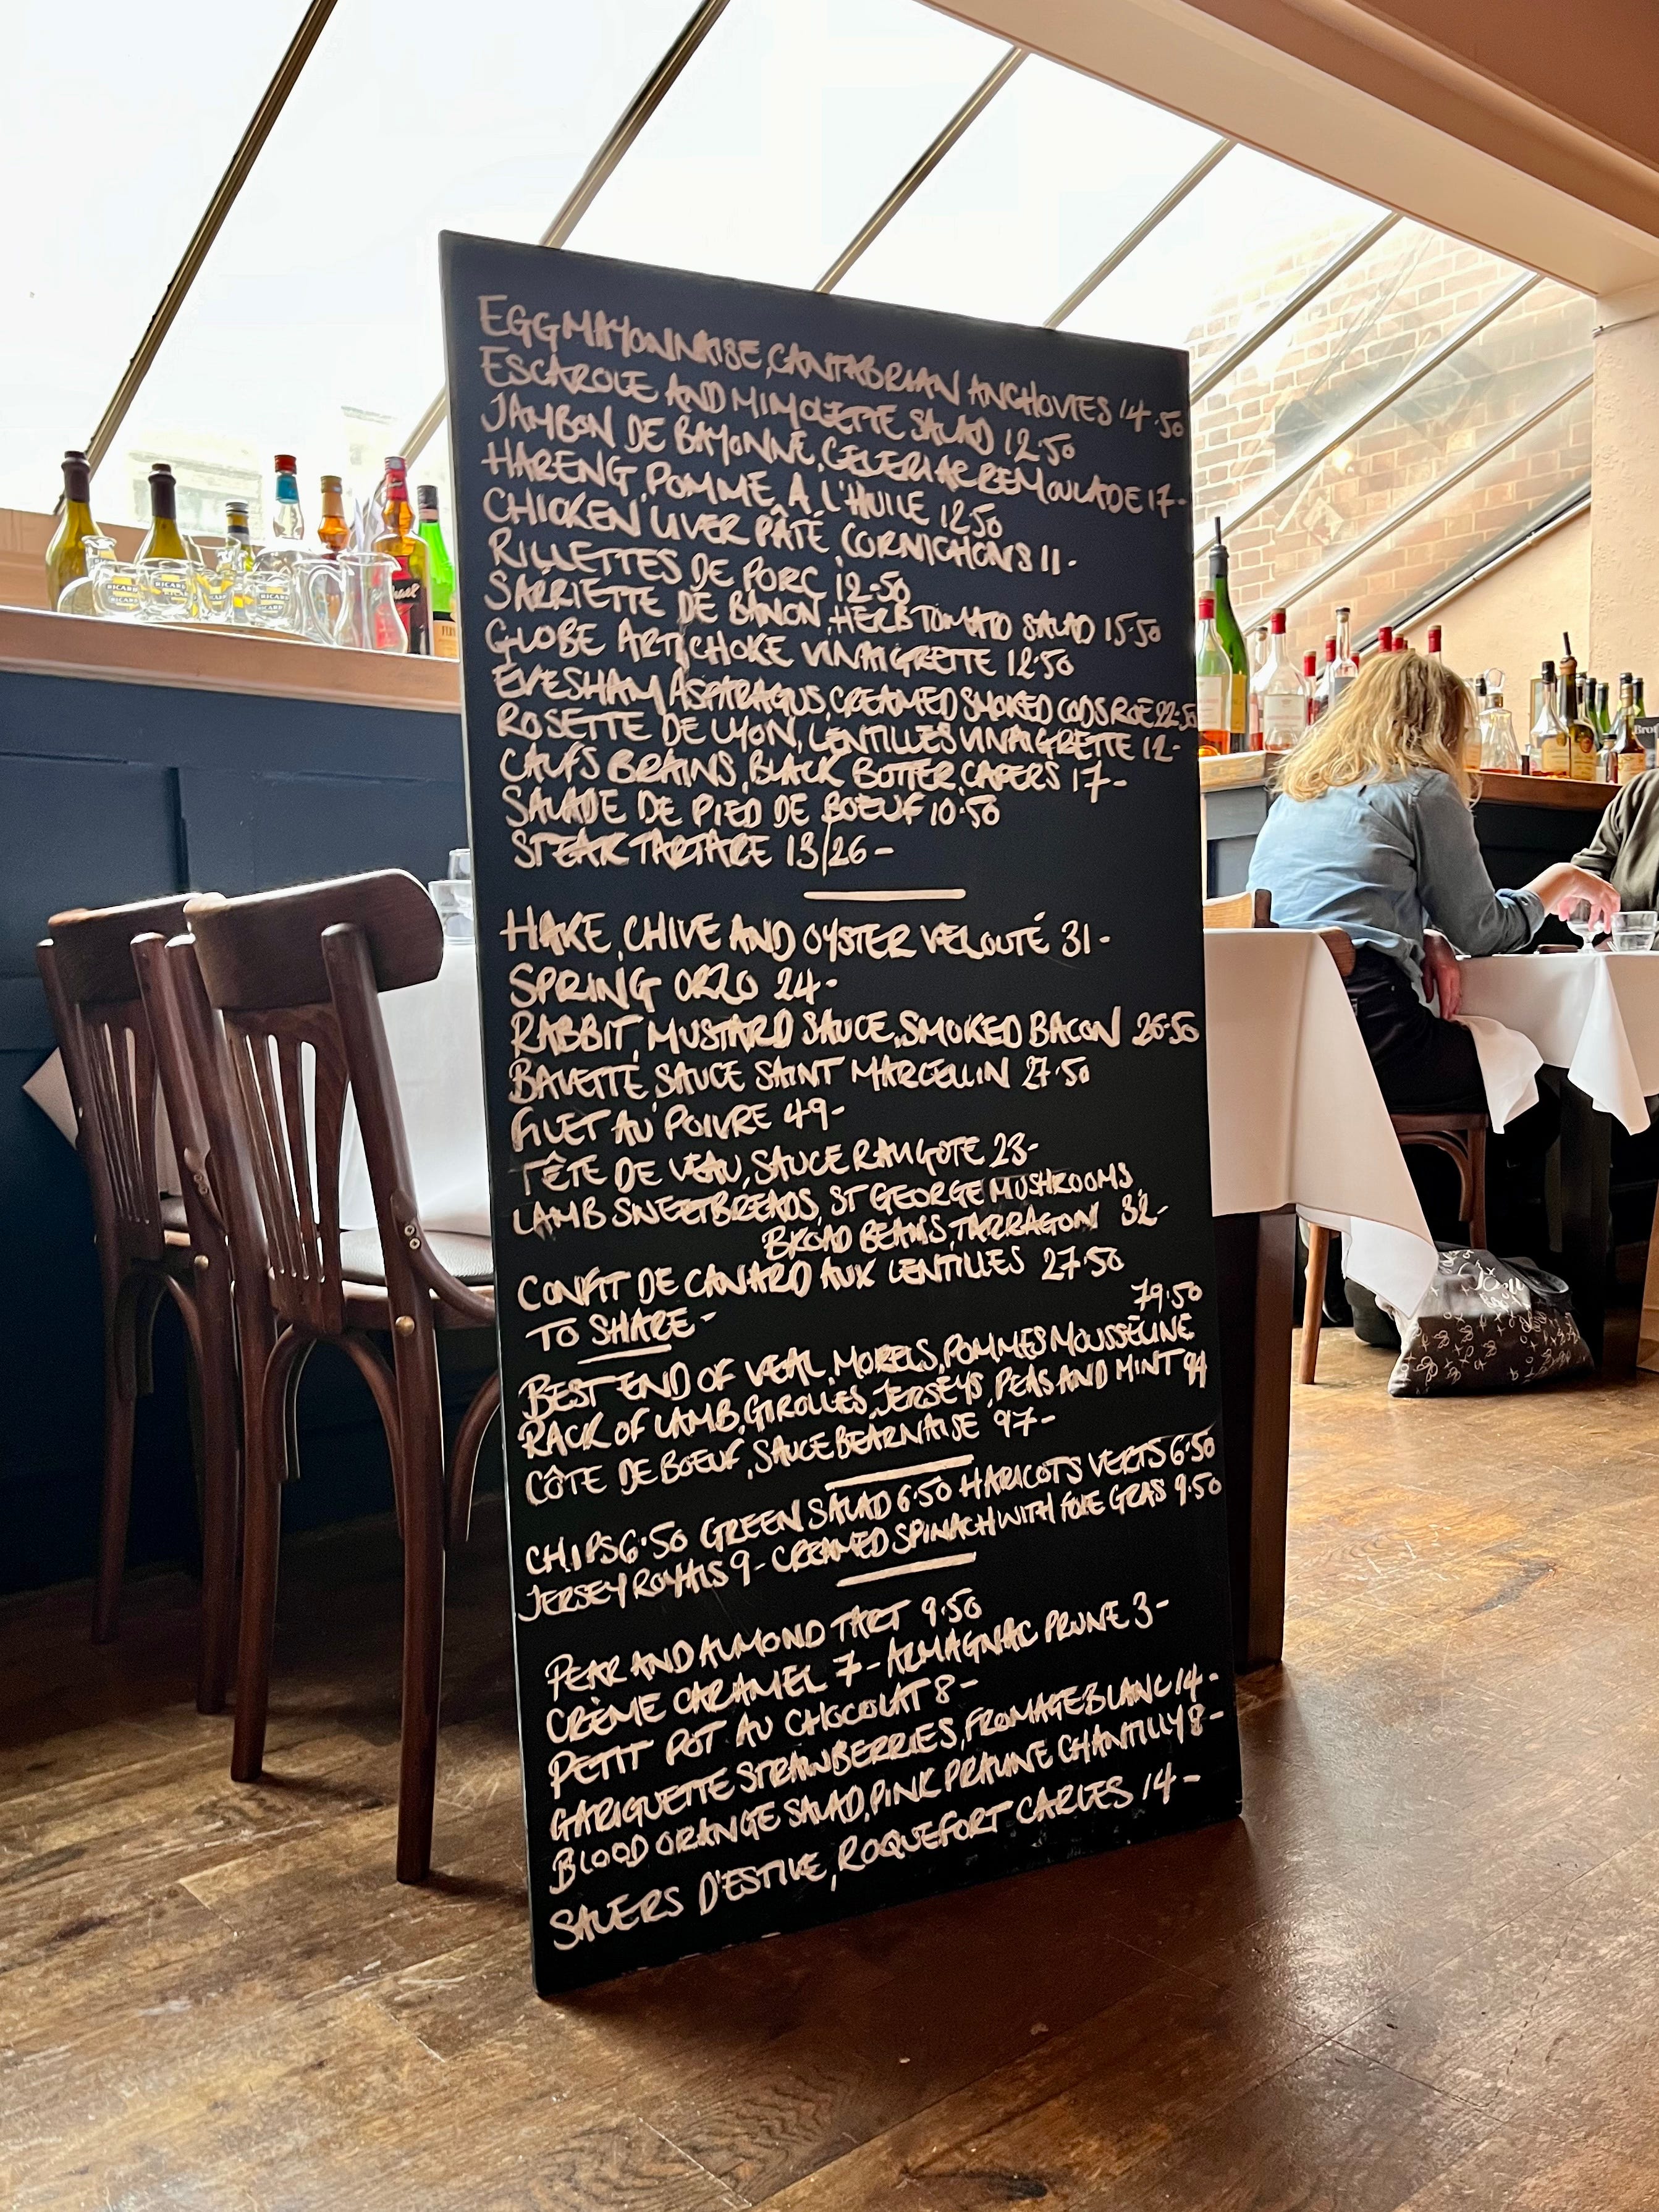 EGG MAYONNAISE, CANTABRIAN ANCHOVIES 14.50
ESCAROLE AND MIMOLETTE SALAD 12.50
JAMBON DE BAYONNE, CELERIAC REMOULADE 17-
HARENG, POMME A L'HUILE 12.50
CHICKEN LIVER PÂTÉ, CORNICHONS 11-
RILLETTES DE PORC 12-50
SARRIETTE DE BANON, HERB TOMATO SALAD 15.50
GLOBE ARTICHOKE VINAIGRETTE 12.50
EVESHAM ASPARAGUS, CREAMED SMOKED CODS ROE 22-50
ROSETTE DE LYON, LENTILLES VINAIGRETTE 12-
CALFS BRAINS, BLACK BUTTER, CAPERS 17-
SALADE DE PIED DE BOEUF 10.50
STEAK TARTARE 13/26-
HAKE, CHIVE AND OYSTER VELOUTÉ 31-
SPRING ORZO 24-
RABBIT, MUSTARD SAUCE, SMOKED BACON 26.50
BAVETTE, SAUCE SAINT MARCELLIN 27.50
FILET AU POIVRE 49-
TÊTE DE VEAU, SAUCE RAVIGOTE 23-
LAMB SWEETBREADS, ST GEORGE MUSHROOMS
BROAD BEANS, TARRAGON 32-
CONFIT DE CANARD AUX LENTILLES 27.50
TO SHARE-
79.50
BEST END OF VEAL, MORELS, POMMES MOUSSELINE
RACK OF LAMB, GIROLLES, JERSEYS, PEAS AND MINT 94
CÔTE DE BOEUF, SAUCE BEARNAISE 97-
CHIPS 6.50 GREEN SALAD 6.50 HARICOTS VERTS 6.50
JERSEY ROYALS 9- CREAMED SPINACH WITH FOIE GRAS 9.50
PEAR AND ALMOND TART 9.50
CRÈME CARAMEL 7- ARMAGNAC PRUNE 3-
PETIT POT AU CHOCOLAT 8-
GARIGUETTE STRAWBERRIES, FROMAGE BLANC 14-
BLOOD ORANGE SALAD, PINK PRALINE CHANTILLY 8-
SALERS D'ESTIVE, ROQUEFORT CARLES 14-
RICARD
RICARD
RICARD